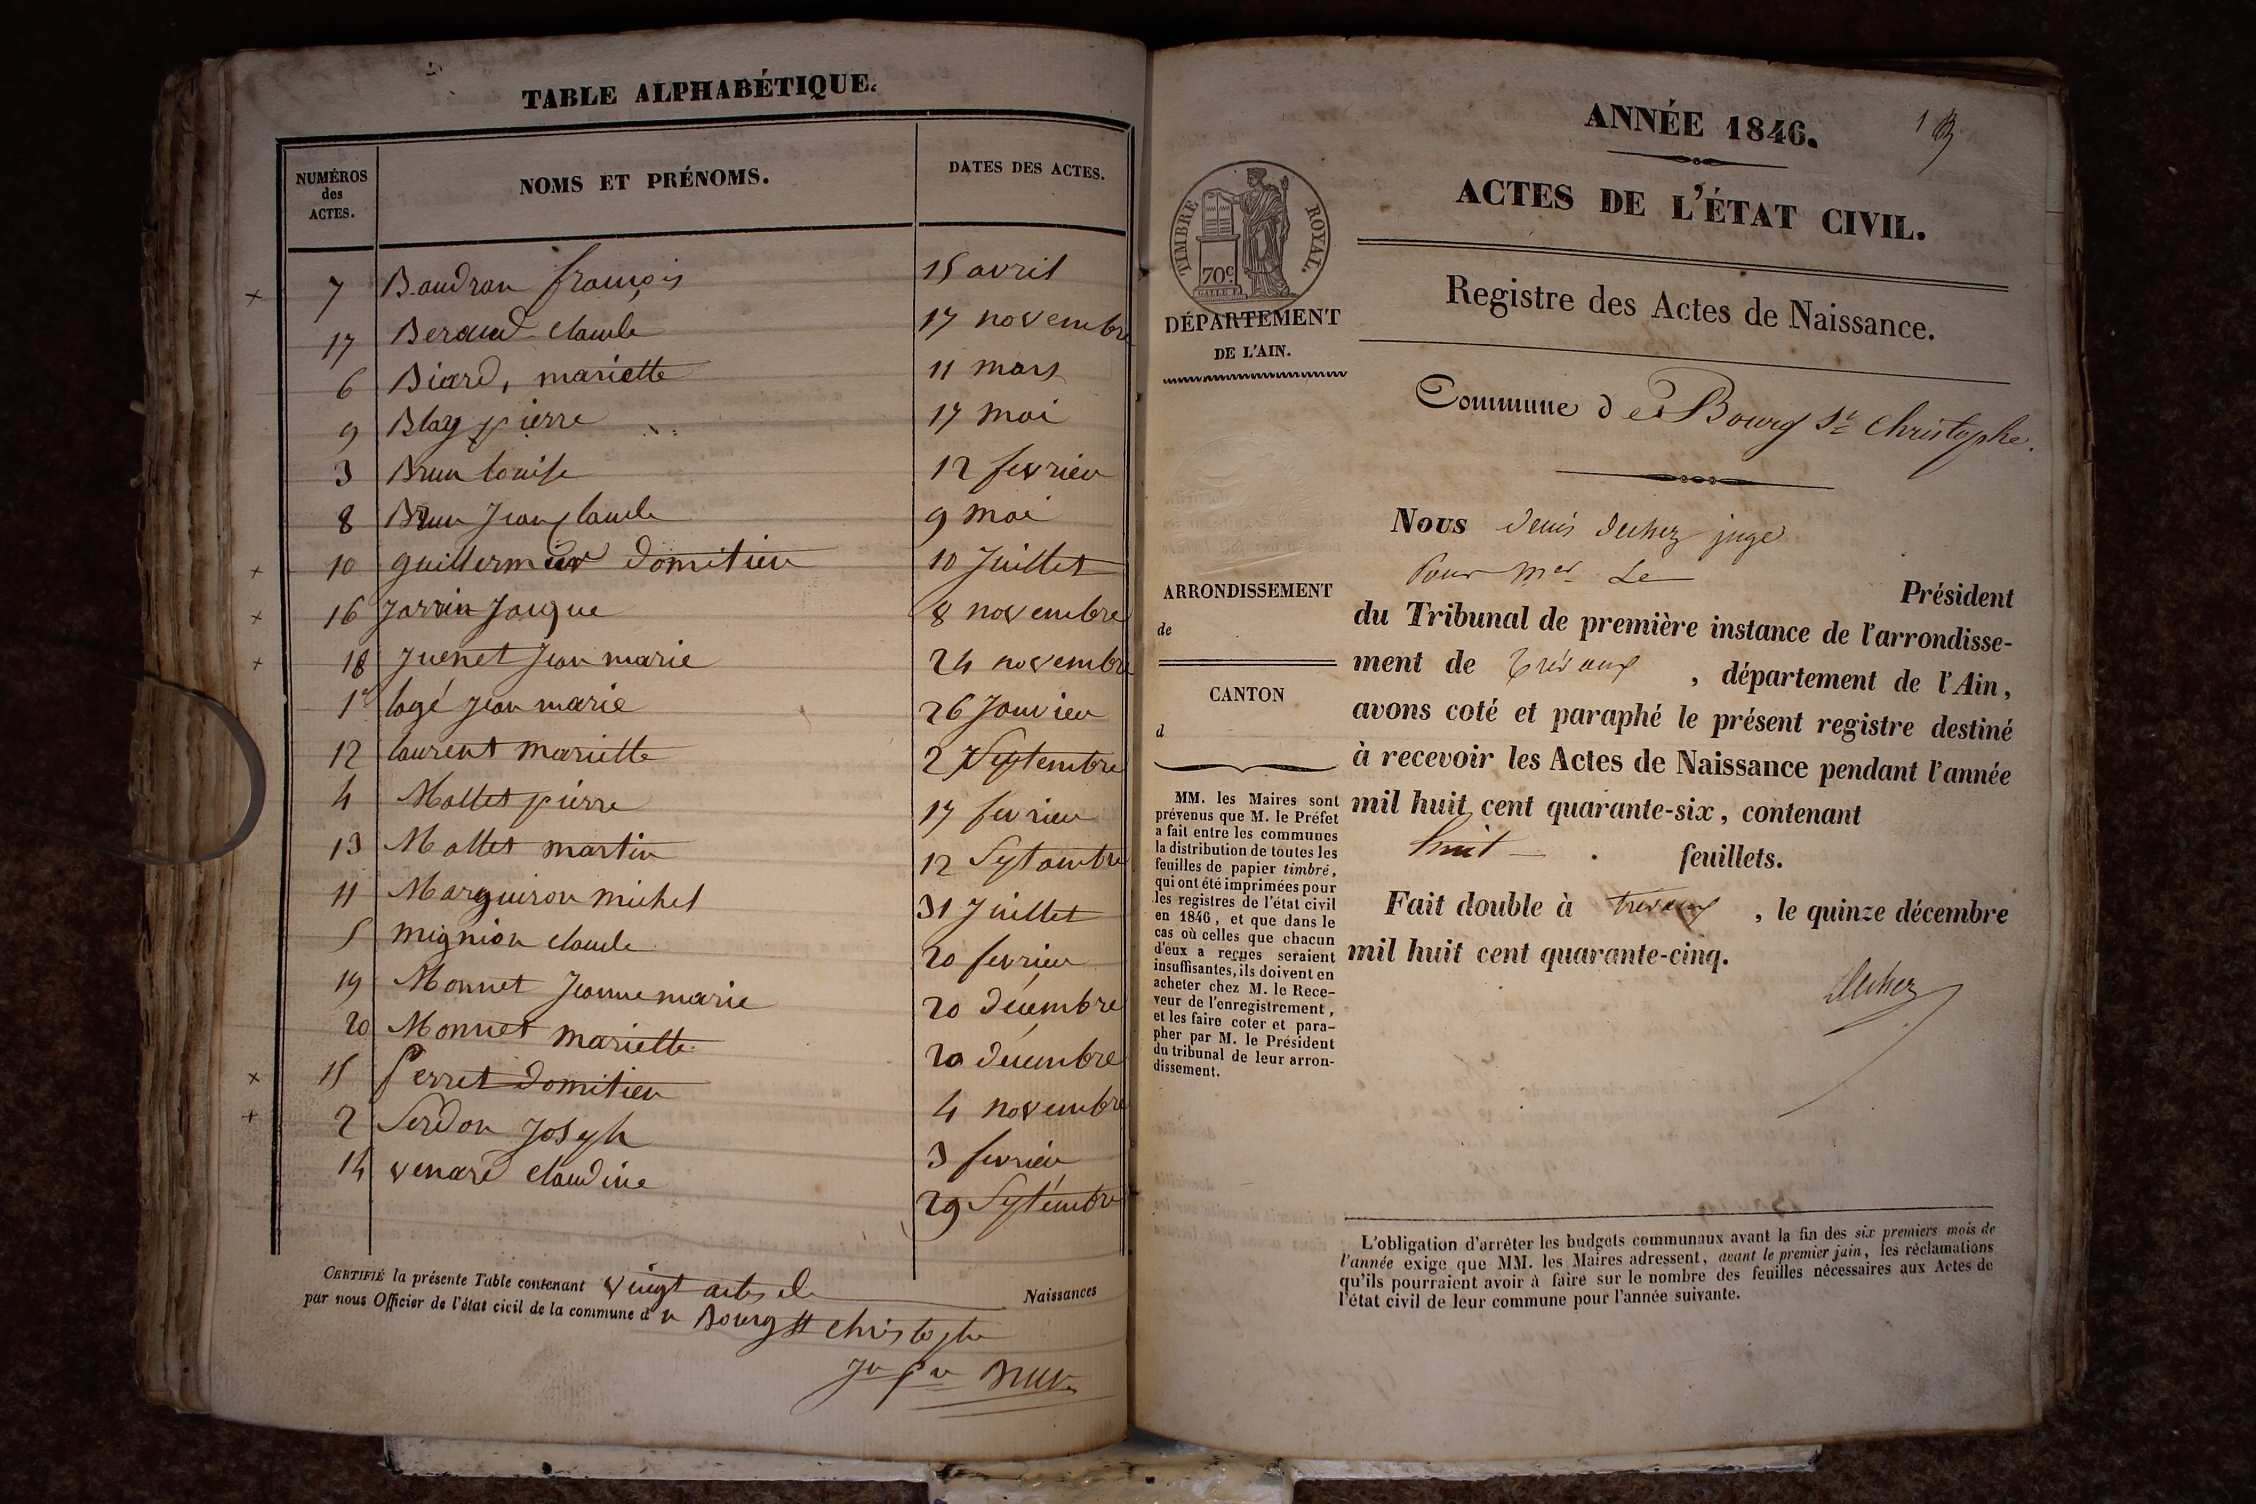 TABLE ALPHABÉTIQUE.
NUMÉROS des ACTES. NOMS ET PRÉNOMS. DATES DES ACTES.
7 Baudran françois 15 avril
17 Beraud Claude 17 novembre
6 Biard, mariette 11 mars
9 Blay pierre 17 mai
3 Brun louise 12 fevrier
8 Brun Jean Claude 9 mai
10 guillermier domitien 10 Juillet
16 Jarrin Jacque 8 novembre
18 Juenet Jean marie 24 novembre
1er logé Jean marie 26 Janvier
12 laurent mariette 2 Septembre
4 Mollet pierre 17 fevrier
13 Mollet martin 12 Septembre
11 Marguiron michel 31 Juillet
5 mignion claude 20 fevrier
19 Monnet Jeanne marie 20 décembre
20 Monnet mariette 20 décembre
15 Perret domitien 4 novembre
2 Serdon Joseph 3 fevrier
14 venard Claudine 29 Septembre
CERTIFIÉ la présente Table contenant vingt actes de Naissances
par nous Officier de l'état civil de la commune de Bourg St Christophe
Brun
ANNÉE 1846.
1
ACTES DE L'ÉTAT CIVIL.
TIMBRE ROYAL.
70c
Registre des Actes de Naissance.
DÉPARTEMENT
DE L'AIN.
Commune de Bourg St Christophe.
Nous Denis Duhez juge
Pour Mer Le Président
ARRONDISSEMENT
de
CANTON
d
du Tribunal de première instance de l'arrondisse-
ment de Trévoux, département de l'Ain,
avons coté et paraphé le présent registre destiné
à recevoir les Actes de Naissance pendant l'année
mil huit cent quarante-six, contenant
huit feuillets.
Fait double à trévoux, le quinze décembre
mil huit cent quarante-cinq.
Duhez
MM. les Maires sont
prévenus que M. le Préfet
a fait entre les communes
la distribution de toutes les
feuilles de papier timbré,
qui ont été imprimées pour
les registres de l'état civil
en 1846, et que dans le
cas où celles que chacun
d'eux a reçues seraient
insuffisantes, ils doivent en
acheter chez M. le Rece-
veur de l'enregistrement,
et les faire coter et para-
pher par M. le Président
du tribunal de leur arron-
dissement.
L'obligation d'arrêter les budgets communaux avant la fin des six premiers mois de
l'année exige que MM. les Maires adressent, avant le premier juin, les réclamations
qu'ils pourraient avoir à faire sur le nombre des feuilles nécessaires aux Actes de
l'état civil de leur commune pour l'année suivante.